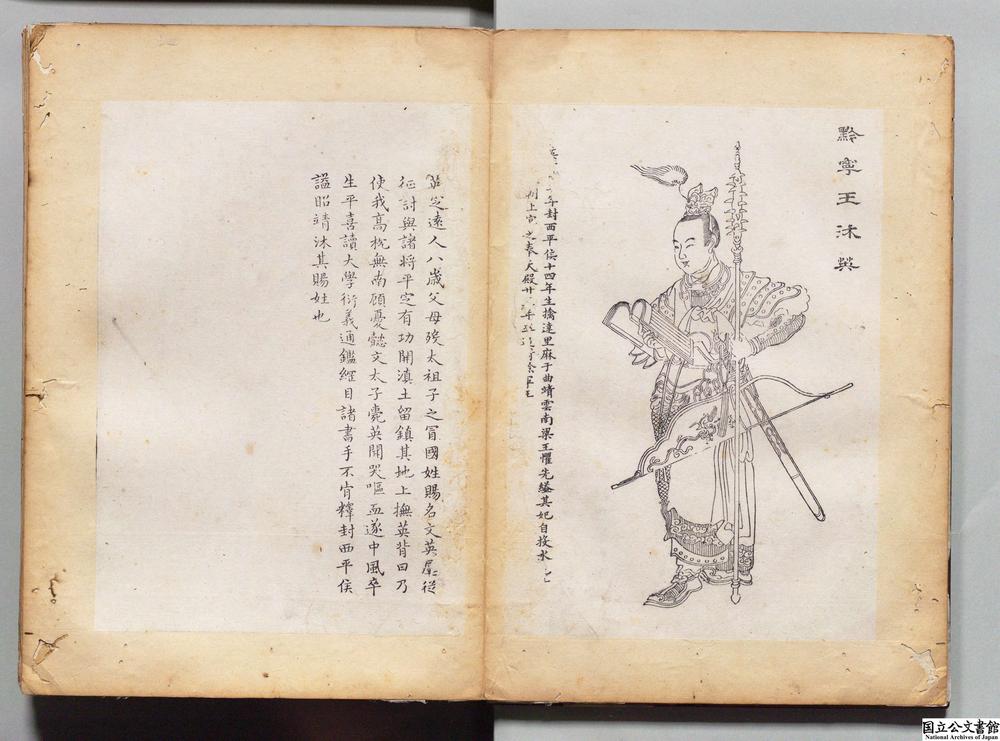 黔寧王沐英
年封西平侯十四年生擒達里麻于曲靖雲南梁王懼先縊其妃自投水
上
之奉天殿廿
定遠人八歲父母歿太祖子之冒國姓賜名文英屢從
征討與諸將平定有功開滇土留鎮其地上撫英背曰乃
使我高枕無南顧憂懿文太子薨英聞哭嘔血遂中風卒
生平喜讀大學衍義通鑑綱目諸書手不肯釋封西平侯
謚昭靖沐其賜姓也
国立公文書館
National Archives of Japan